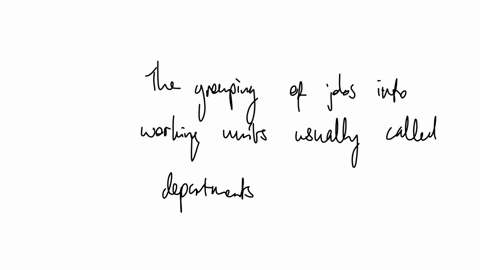 The grouping of jobs into
working units usually called
departments